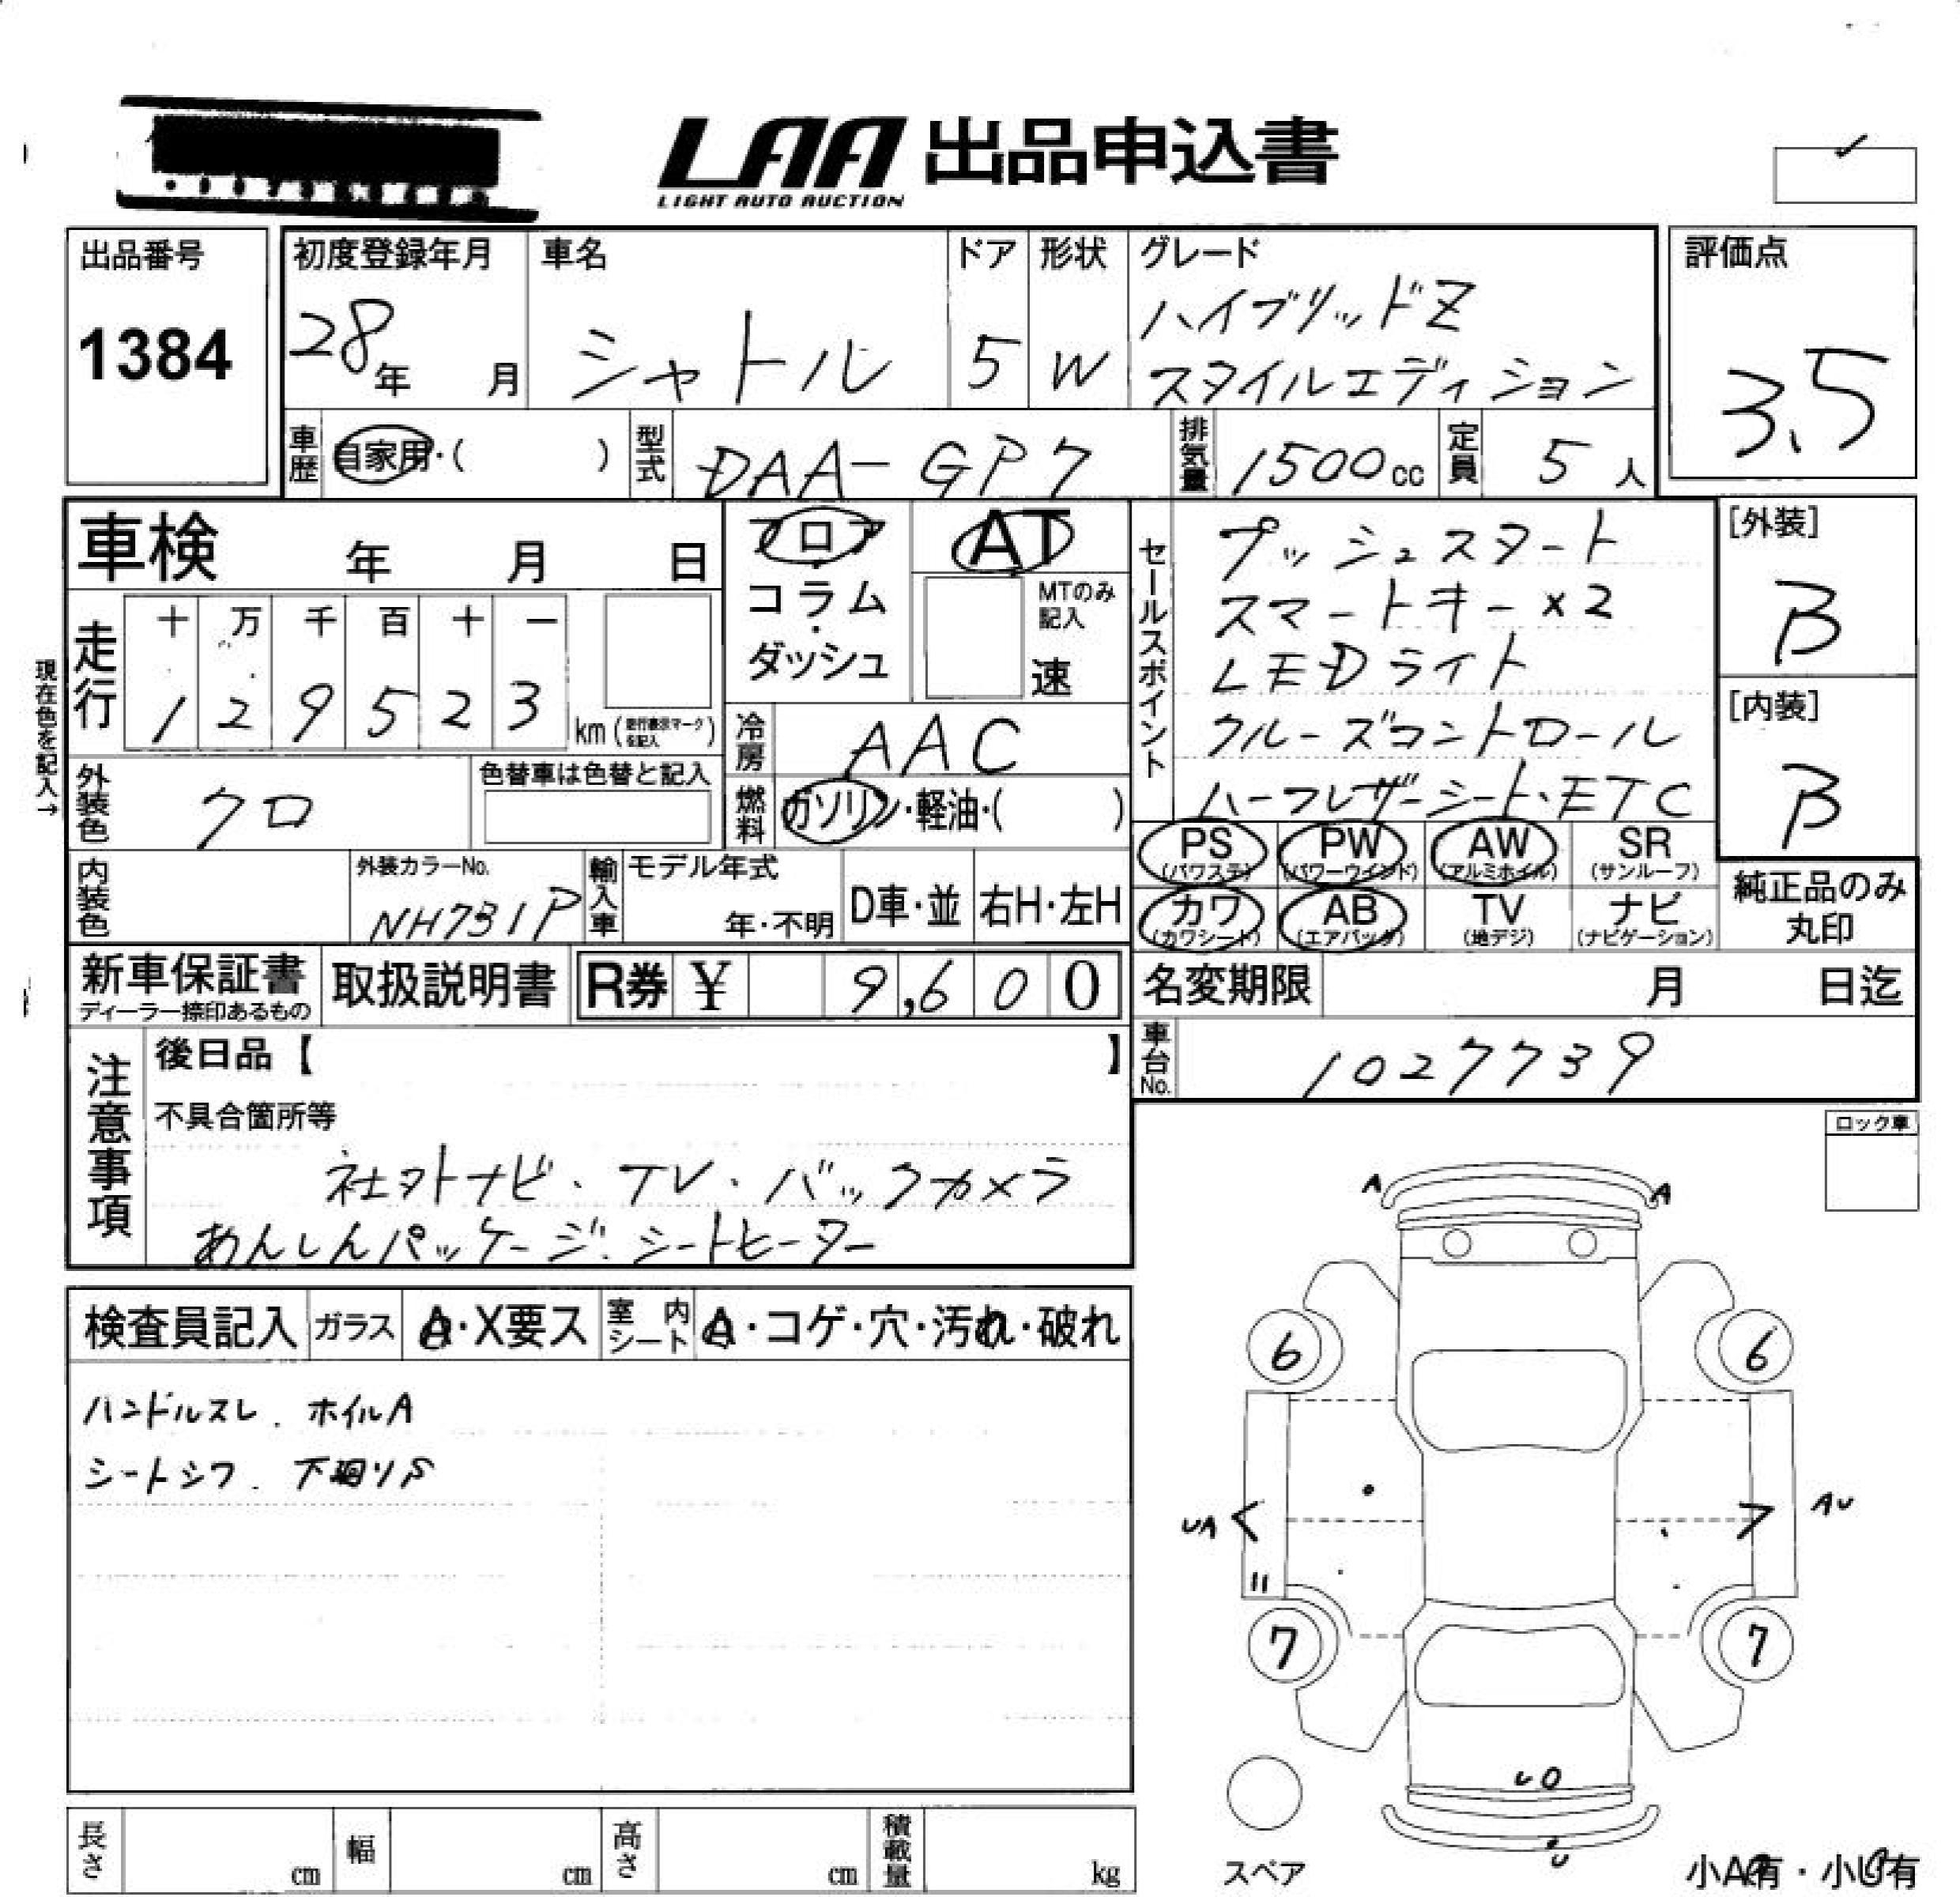 LAA 出品申込書
LIGHT AUTO AUCTION
出品番号
1384
初度登録年月
28年 月
車名
シャトル
ドア
5
形状
W
グレード
ハイブリッドZ
スタイルエディション
評価点
3.5
車歴 自家用・( )
型式 DAA-GP7
排気量 1500cc
定員 5人
車検 年 月 日
フロア
・
コラム
・
ダッシュ
AT
MTのみ
記入
速
セールスポイント
プッシュスタート
スマートキー×2
LEDライト
クルーズコントロール
ハーフレザーシート・ETC
[外装]
B
[内装]
B
現在色を記入→
走行
十 万 千 百 十 一
1 2 9 5 2 3 km (走行表示マークを記入)
冷房 AAC
外装色 クロ
色替車は色替と記入
燃料 ガソリン・軽油・( )
PS (パワステ)
PW (パワーウインド)
AW (アルミホイル)
SR (サンルーフ)
カワ (カワシート)
AB (エアバッグ)
TV (地デジ)
ナビ (ナビゲーション)
純正品のみ
丸印
内装色
外装カラーNo.
NH731P
輸入車
モデル年式
年・不明
D車・並
右H・左H
新車保証書
ディーラー捺印あるもの
取扱説明書
R券 ¥ 9,600
名変期限 月 日迄
車台No. 1027739
注意事項
後日品【 】
不具合箇所等
社外ナビ・TV・バックカメラ
あんしんパッケージ・シートヒーター
ロック車
検査員記入
ガラス
A・X要ス
室内シート
A・コゲ・穴・汚れ・破れ
ハンドルスレ. ホイルA
シートシワ. 下廻りS
A A
6 6
UA AU
7 7
U
U
スペア
小A有・小U有
長さ cm
幅 cm
高さ cm
積載量 kg